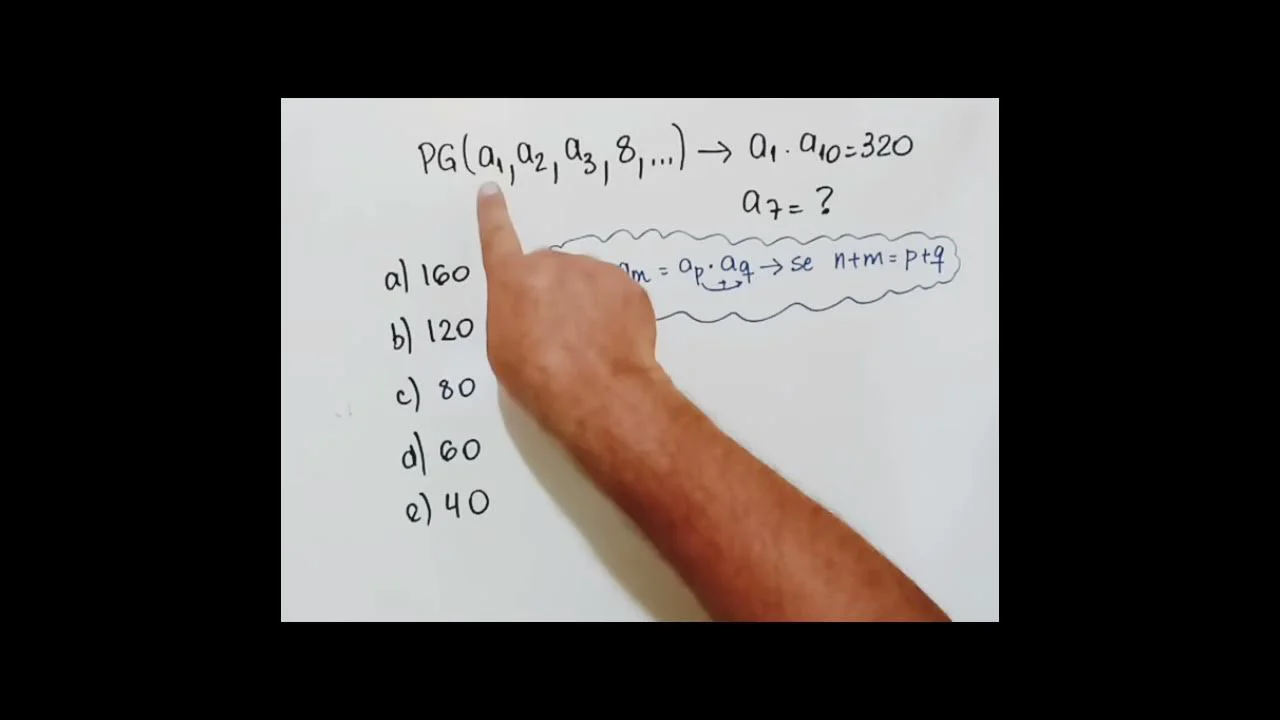 PG(a₁, a₂, a₃, 8, ...) → a₁ . a₁₀ = 320
a₇ = ?
aₘ = aₚ . a_q → se n+m = p+q
+
a) 160
b) 120
c) 80
d) 60
e) 40